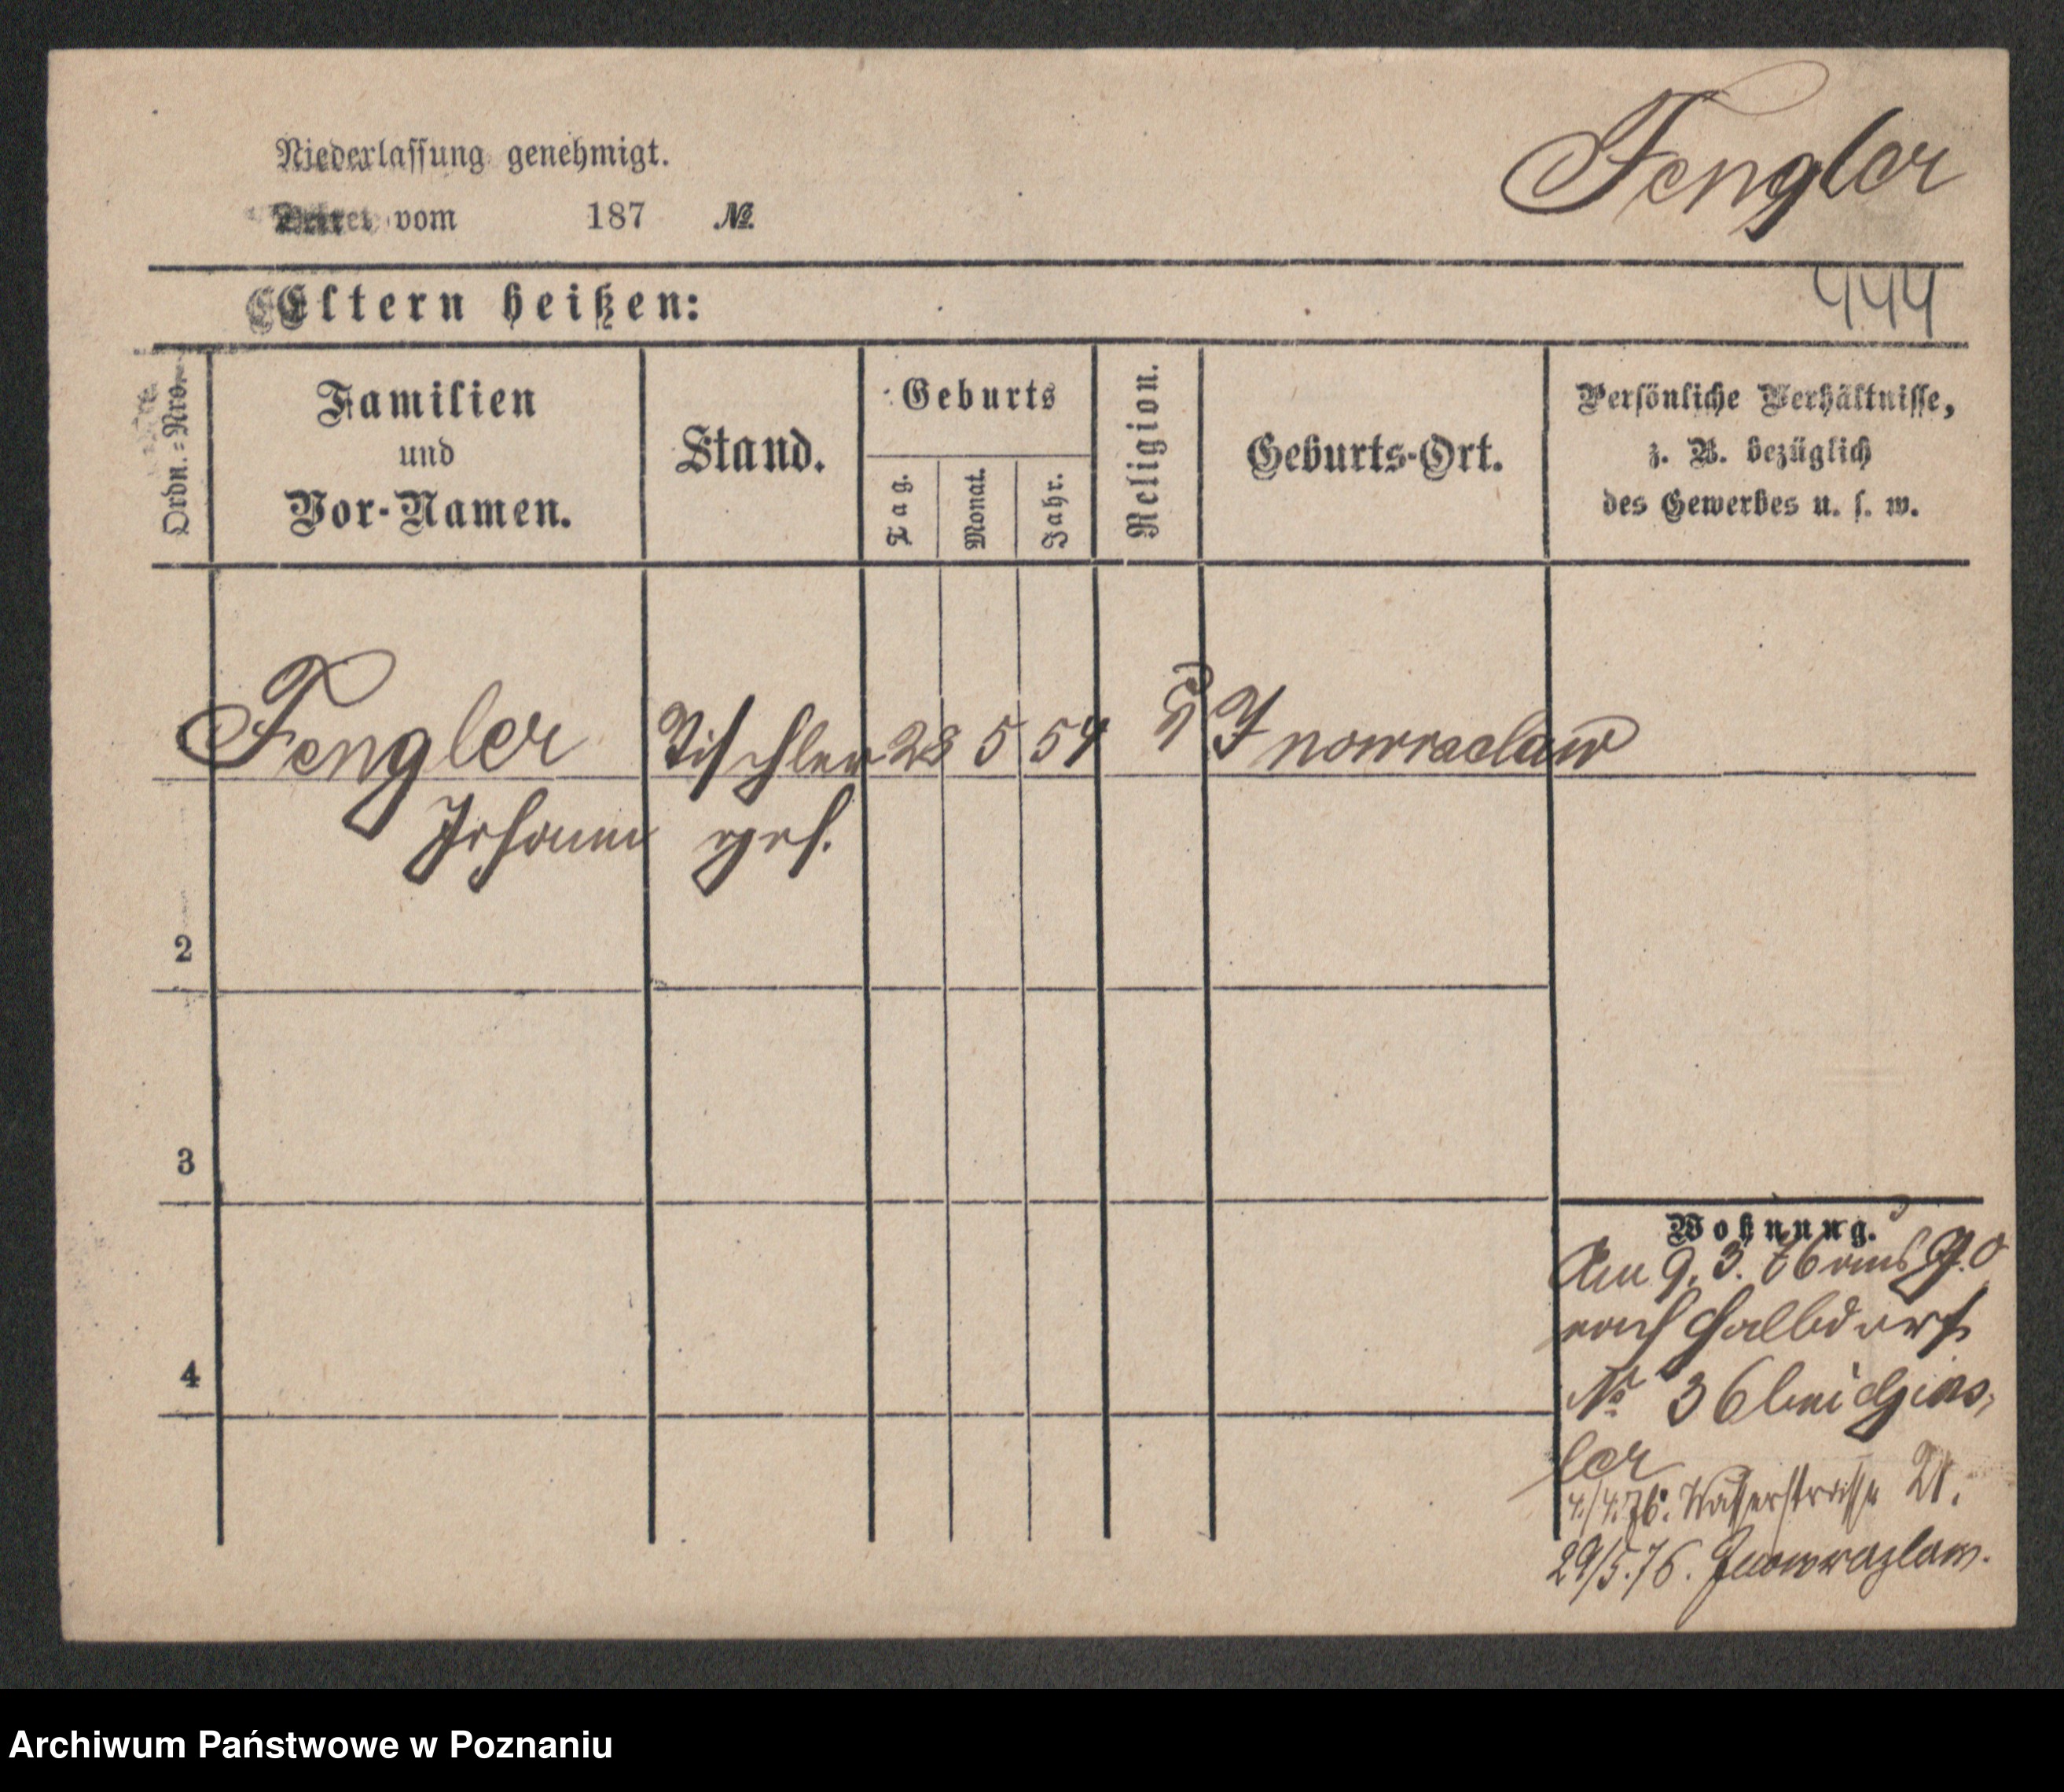 Fengler
Niederlassung genehmigt.
Dekret vom 187 №.
Eltern heißen:
444
Ordn.-Nro.
Familien
und
Vor-Namen.
Stand.
Geburts
Tag.
Monat.
Jahr.
Religion.
Geburts-Ort.
Persönliche Verhältnisse,
z. B. bezüglich
des Gewerbes u. s. w.
Fengler Tischler 28 5 54 Inowraclaw
Johann ges.
2
3
4
Wohnung.
Am 9. 3. 76 aus
nach Halbdorf
№ 36 bei
ler
4/4.76. Wasserstrasse 21.
29/5.76. Inowrazlaw.